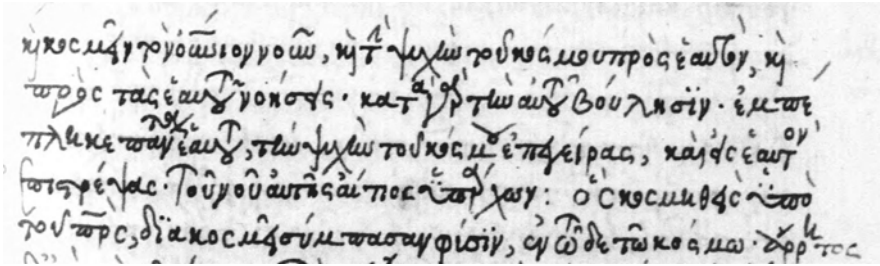 καὶ κοσμεῖν τὸν οὐνιον νοῦν, καὶ τὴν ψυχὴν τοῦ κόσμου πρὸς ἑαυτὸν, καὶ
πρὸς τὰς ἑαυτοῦ νοήσεις· κατὰ γὰρ τὴν αὐτοῦ βούλησϊν· ἐμπε
πλικε πάντα ἑαυτοῦ, τὴν ψυχὴν τοῦ κόσμου ἐπεγείρας, καὶ εἰς ἑαυτὸν
ἐπιστρέψας· τοῦ νοῦ αὐτῆς αἴτιος ὑπάρχων: ὃς κοσμηθεὶς ὑπὸ
τοῦ πρς, δϊακοσμεῖ σύμπασαν φύσϊν, ἐν τῶδε τῶ κόσμω· ἄρρητος